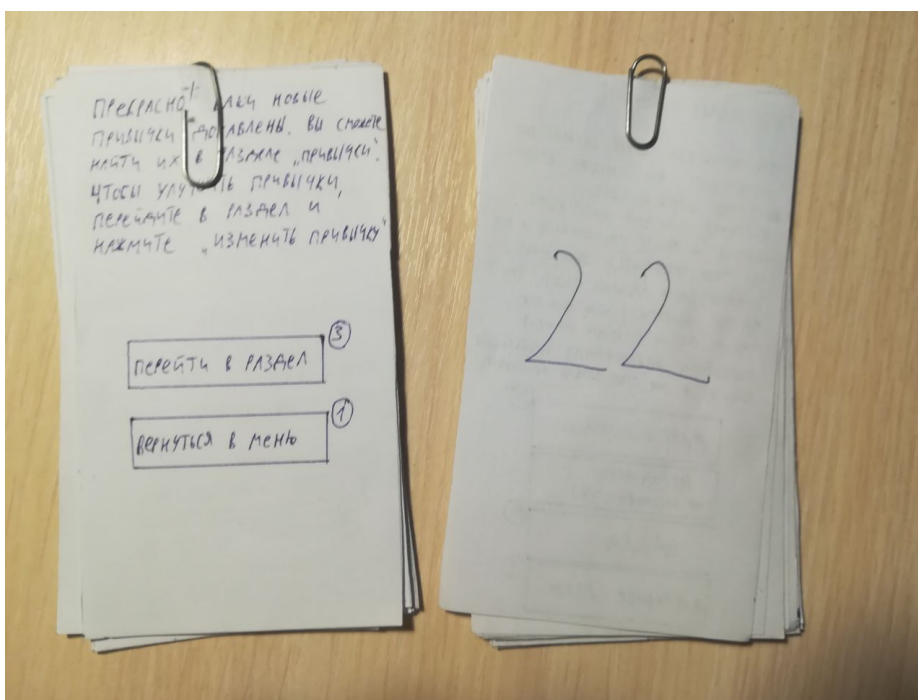 ПРЕКРАСНО! ВАШИ НОВЫЕ
ПРИВЫЧКИ ДОБАВЛЕНЫ. ВЫ СМОЖЕТЕ
НАЙТИ ИХ В РАЗДЕЛЕ „ПРИВЫЧКИ“.
ЧТОБЫ УЛУЧШИТЬ ПРИВЫЧКИ,
ПЕРЕЙДИТЕ В РАЗДЕЛ И
НАЖМИТЕ „ИЗМЕНИТЬ ПРИВЫЧКУ“
3
ПЕРЕЙТИ В РАЗДЕЛ
1
ВЕРНУТЬСЯ В МЕНЮ
22